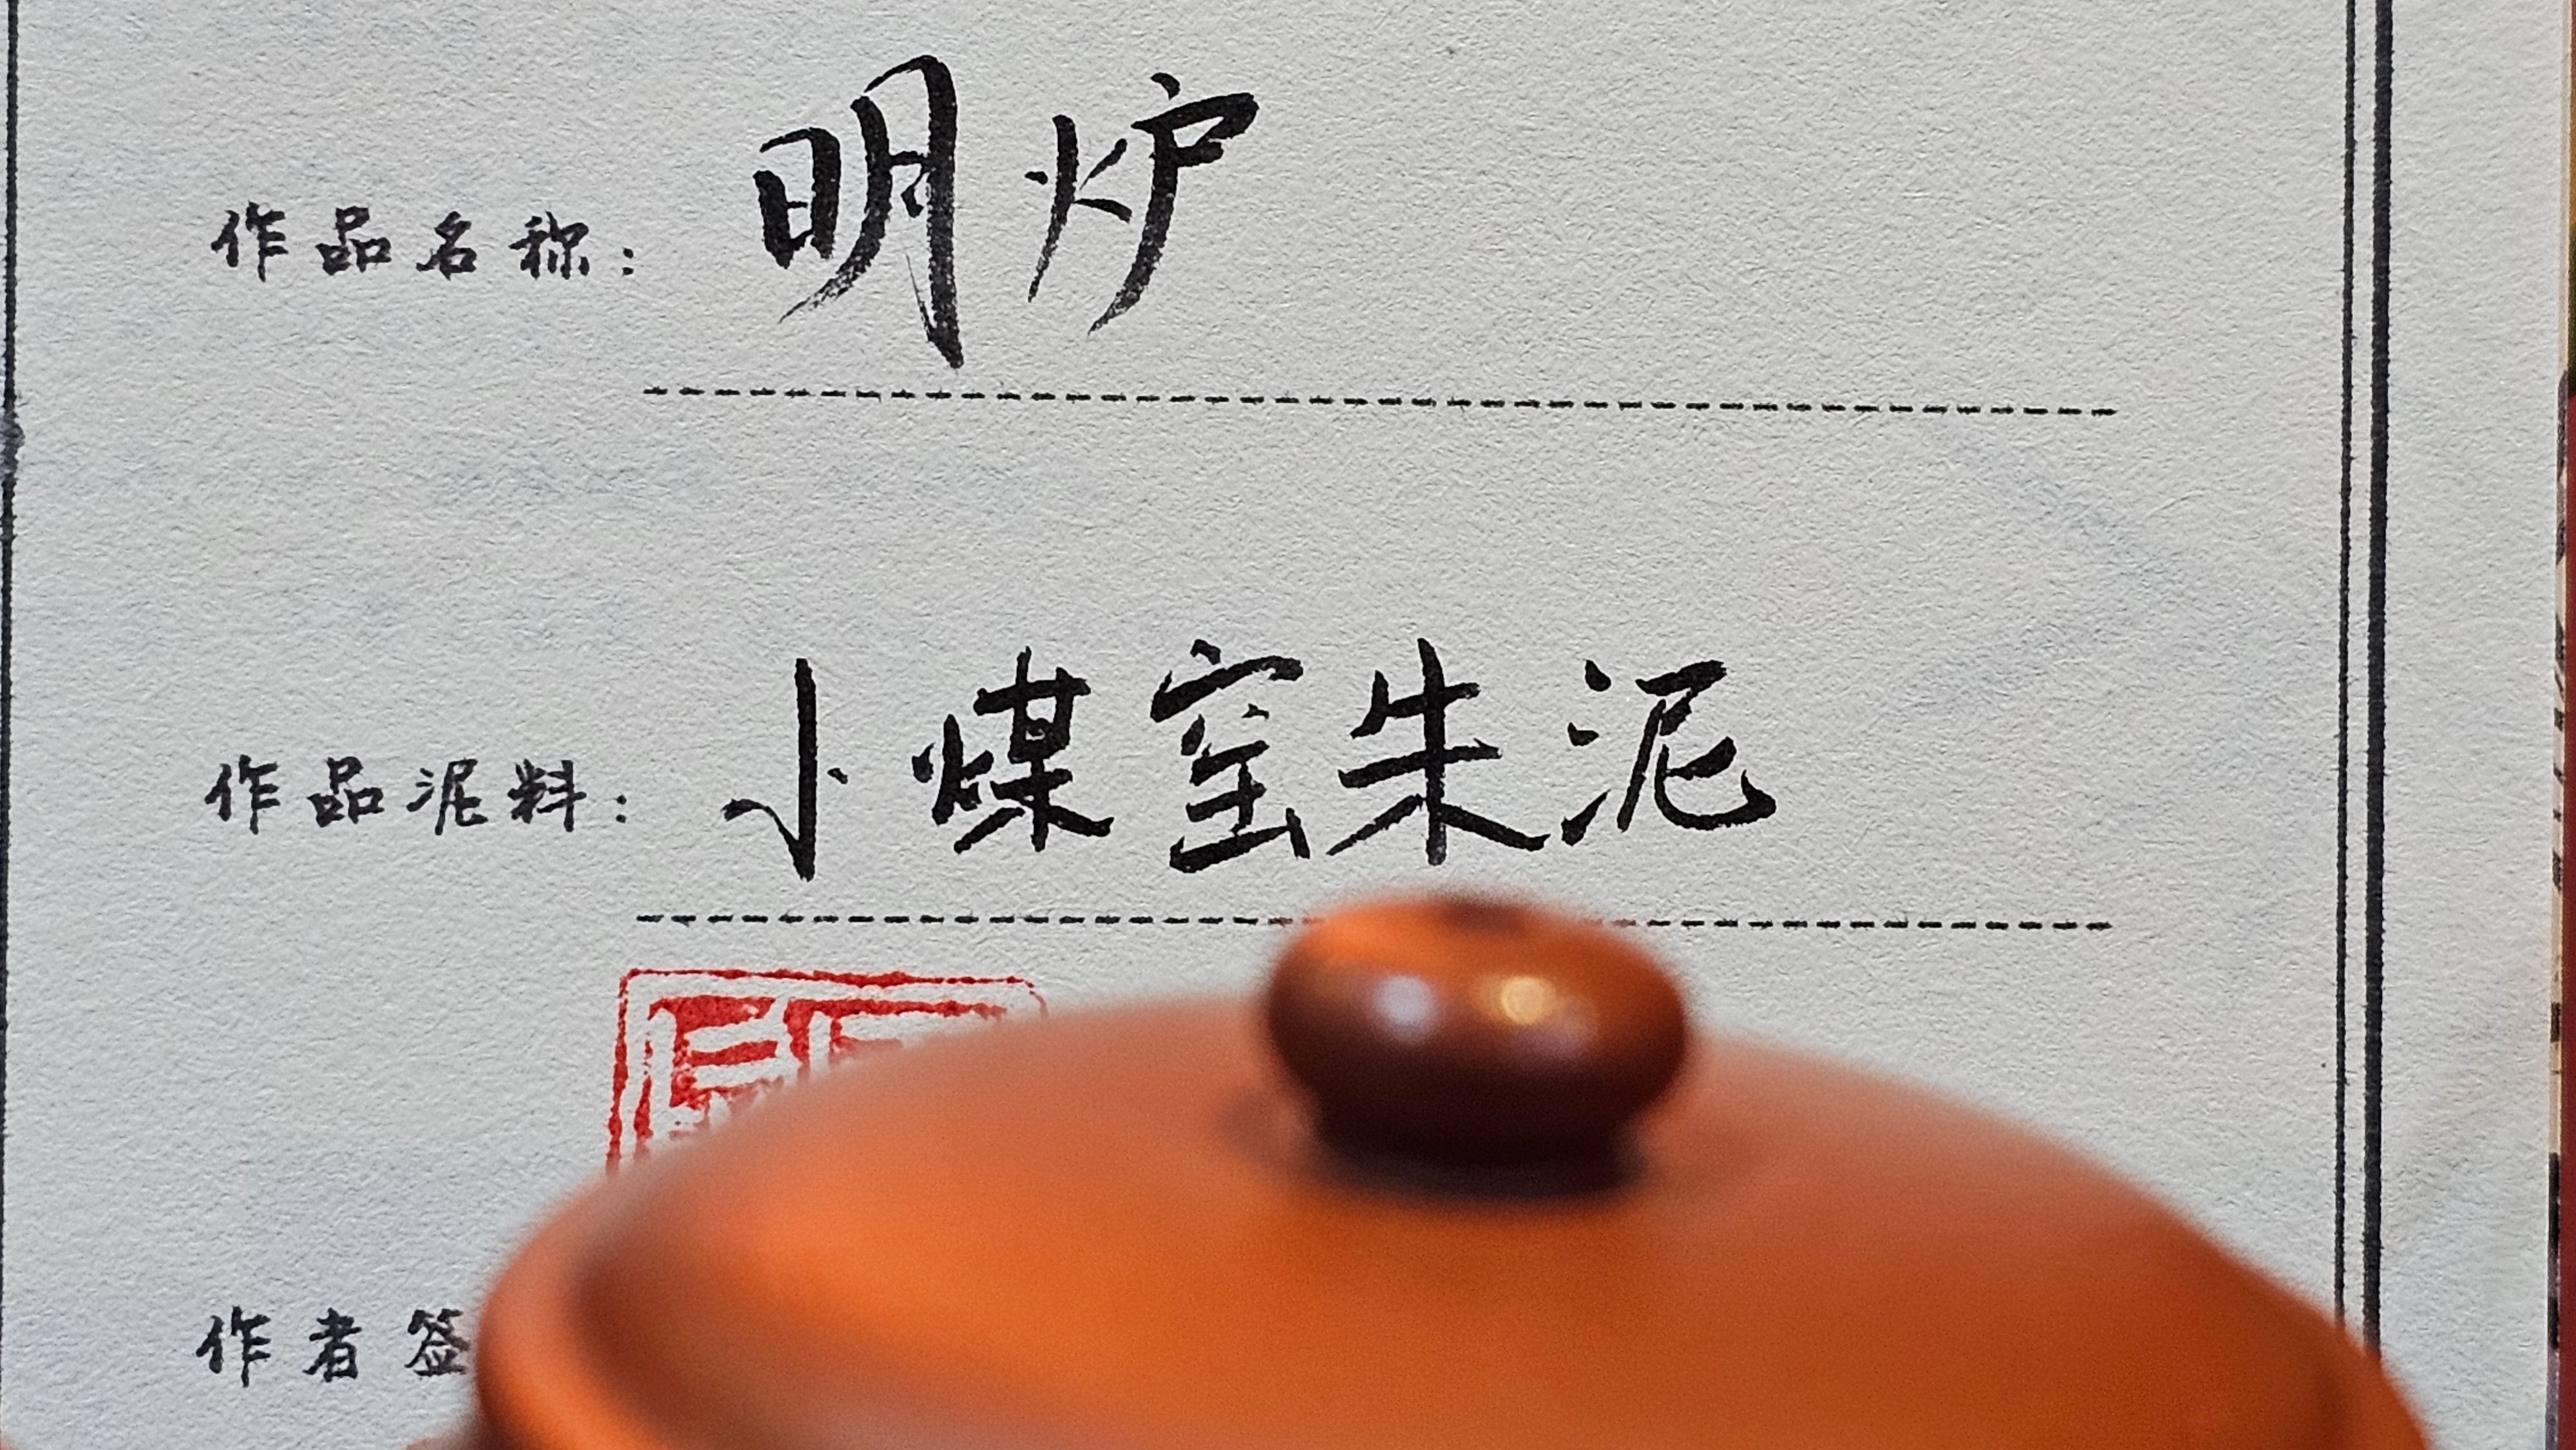 作品名称：明炉
作品泥料：小煤窑朱泥
作者签